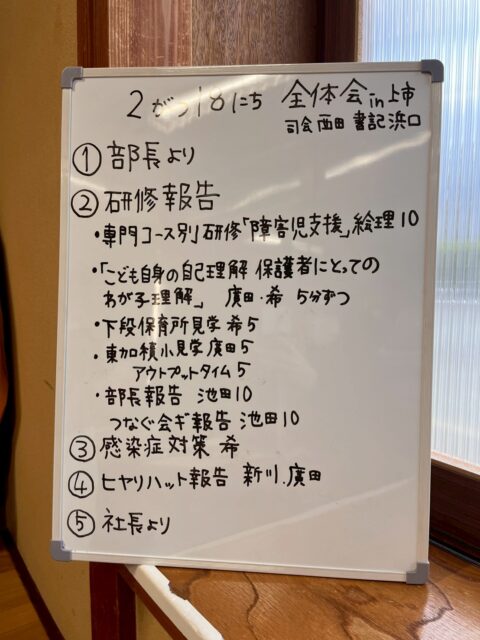 2がつ18にち 全体会 in 上市
司会 西田 書記 浜口
① 部長より
② 研修報告
・専門コース別研修「障害児支援」絵理10
・「こども自身の自己理解 保護者にとっての
わが子理解」 廣田・希 5分ずつ
・下段保育所見学 希5
・東加積小見学 廣田5
アウトプットタイム5
・部長報告 池田10
つなぐ会ギ報告 池田10
③ 感染症対策 希
④ ヒヤリハット報告 新川.廣田
⑤ 社長より